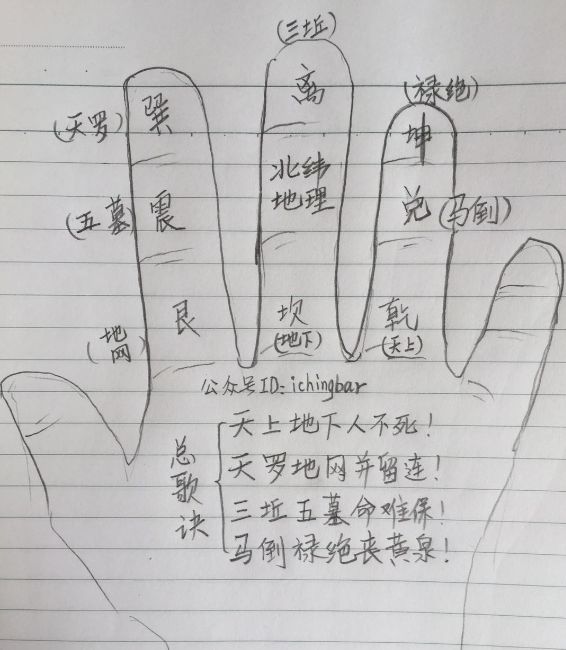 (三坵)
离
(禄绝)
巽
(天罗)
坤
北纬
地理
(五墓)
震
兑
(马倒)
艮
(地网)
坎
(地下)
乾
(天上)
公众号ID:ichingbar
总歌诀
天上地下人不死!
天罗地网并留连!
三坵五墓命难保!
马倒禄绝丧黄泉!